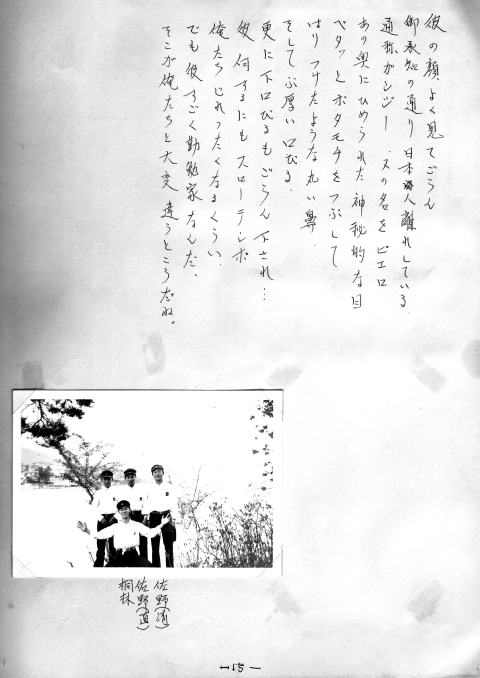 彼の顔よく見てごらん
御承知の通り日本人離れしている。
通称ガンジー 又の名をピエロ
あの奥にひめられた神秘的な目
ペタッとボタモチをつぶして
はりつけたような丸い鼻.
そしてぶ厚い口びる.
更に下口びるもごらん下され…
彼、何するにもスローテンポ
俺たちじれったくなるくらい.
でも彼すごく勤勉家なんだ、
そこが俺たちと大変違うところだね。
佐野(清)
佐野(直)
桐林
-15-